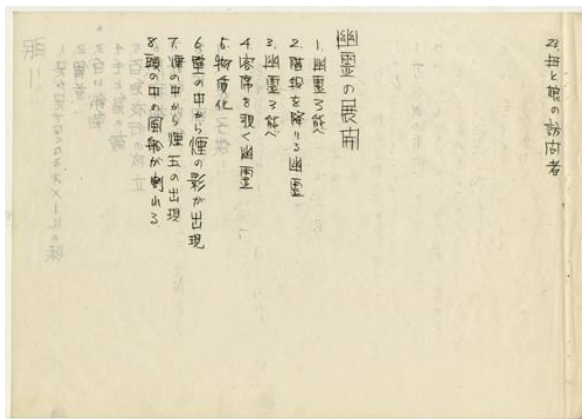 23. 母と娘の訪問者
幽霊の展開
1. 幽霊3態
2. 階段を降りる幽霊
3. 幽霊3態
4. 客席を覗く幽霊
5. 物質化
6. 壁の中から煙の影が出現
7. 煙の中から煙玉の出現
8. 頭の中の風船が割れる